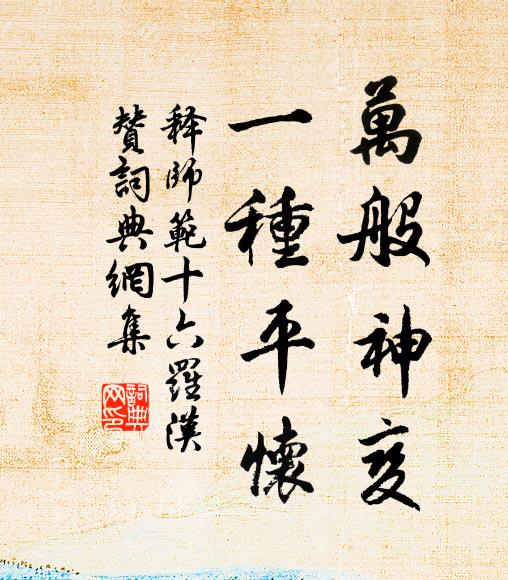 萬般神变
一種平懷
释師範十六羅漢
贊詞典網集
詞典
网印